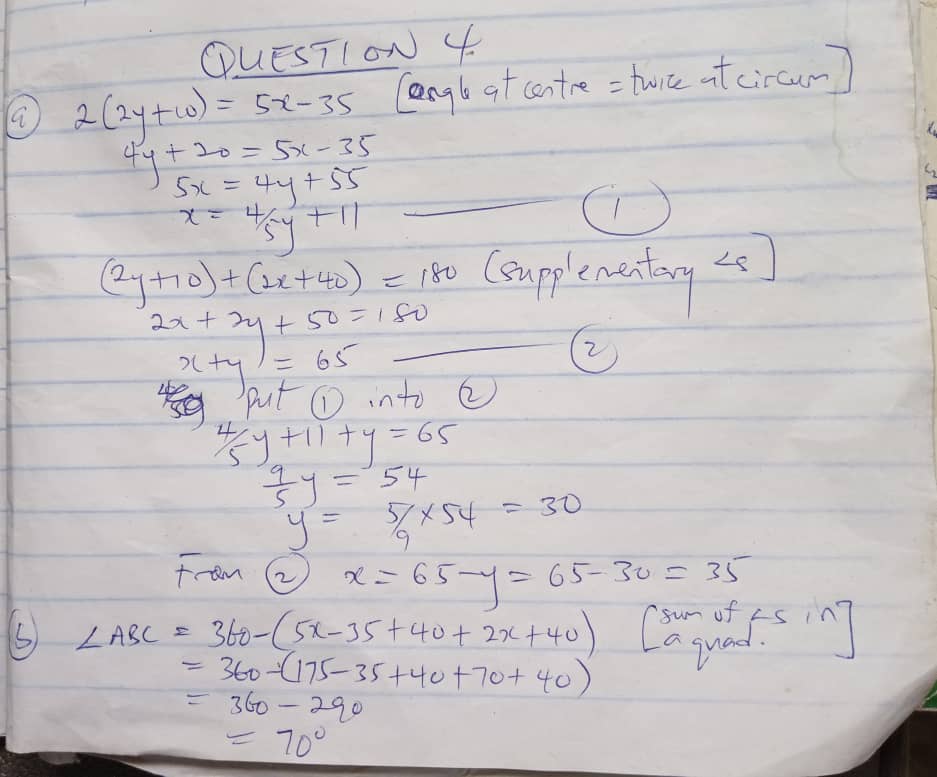 QUESTION 4
(a) 2(2y+10) = 5x-35 [angle at centre = twice at circum]
4y + 20 = 5x - 35
5x = 4y + 55
x = 4/5y + 11 —— (1)
(2y+10)+(2x+40) = 180 (supplementary <s]
2x + 2y + 50 = 180
x+y = 65 —— (2)
put (1) into (2)
4/5y + 11 + y = 65
9/5y = 54
y = 5/9 x 54 = 30
From (2) x = 65-y = 65-30 = 35
(b) ∠ABC = 360-(5x-35+40+2x+40) [sum of <s in a quad.]
= 360-(175-35+40+70+40)
= 360 - 290
= 70°